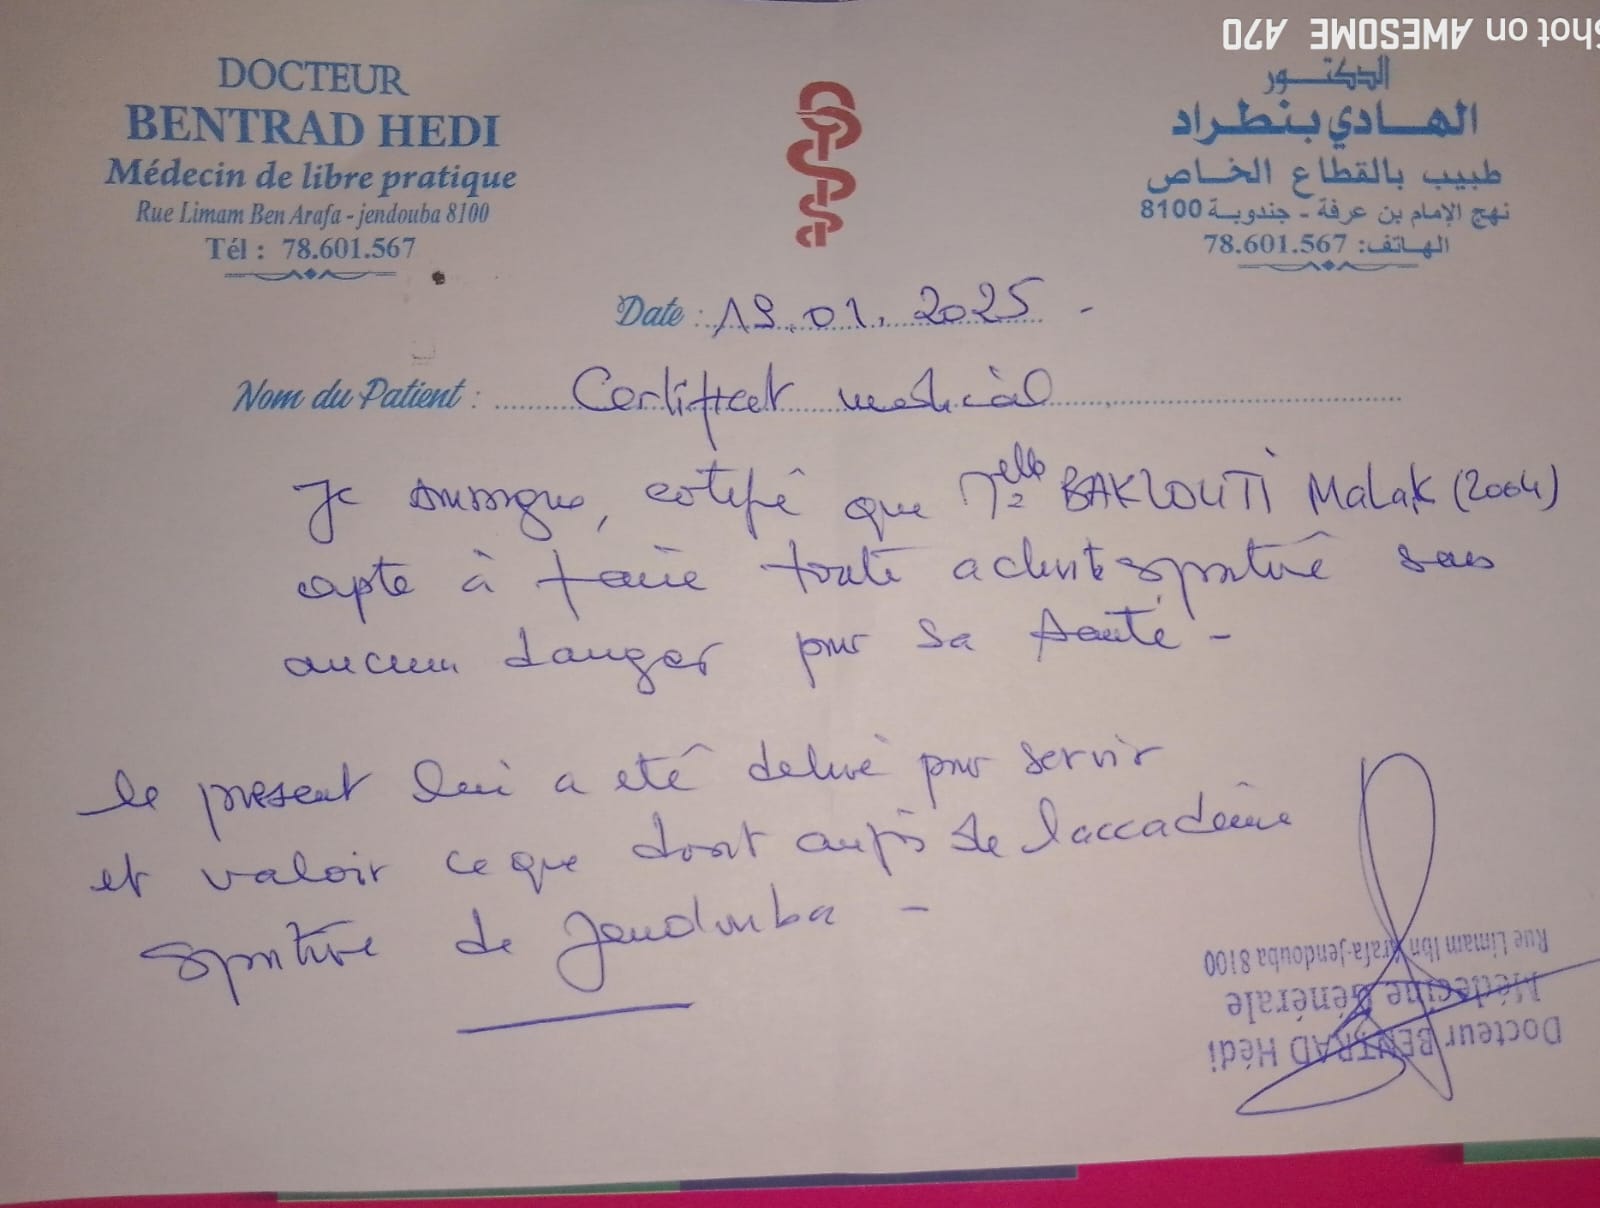 Shot on AWESOME A70
DOCTEUR
BENTRAD HEDI
Médecin de libre pratique
Rue Limam Ben Arafa - jendouba 8100
Tél : 78.601.567
الدكتور
الهادي بنطراد
طبيب بالقطاع الخاص
نهج الإمام بن عرفة - جندوبة 8100
الهاتف: 78.601.567
Date : 19.01.2025 -
Nom du Patient : Certificat medical
Je soussigne, certifie que Melle BAKLOUTI Malak (2004)
apte à faire toute activité sportive sans
aucun danger pour sa santé -
le present lui a eté delivré pour servir
et valoir ce que droit auprès de l'accademie
sportive de Jendouba -
Docteur BENTRAD Hédi
Médecine Générale
Rue Limam Ibn Arafa-Jendouba 8100